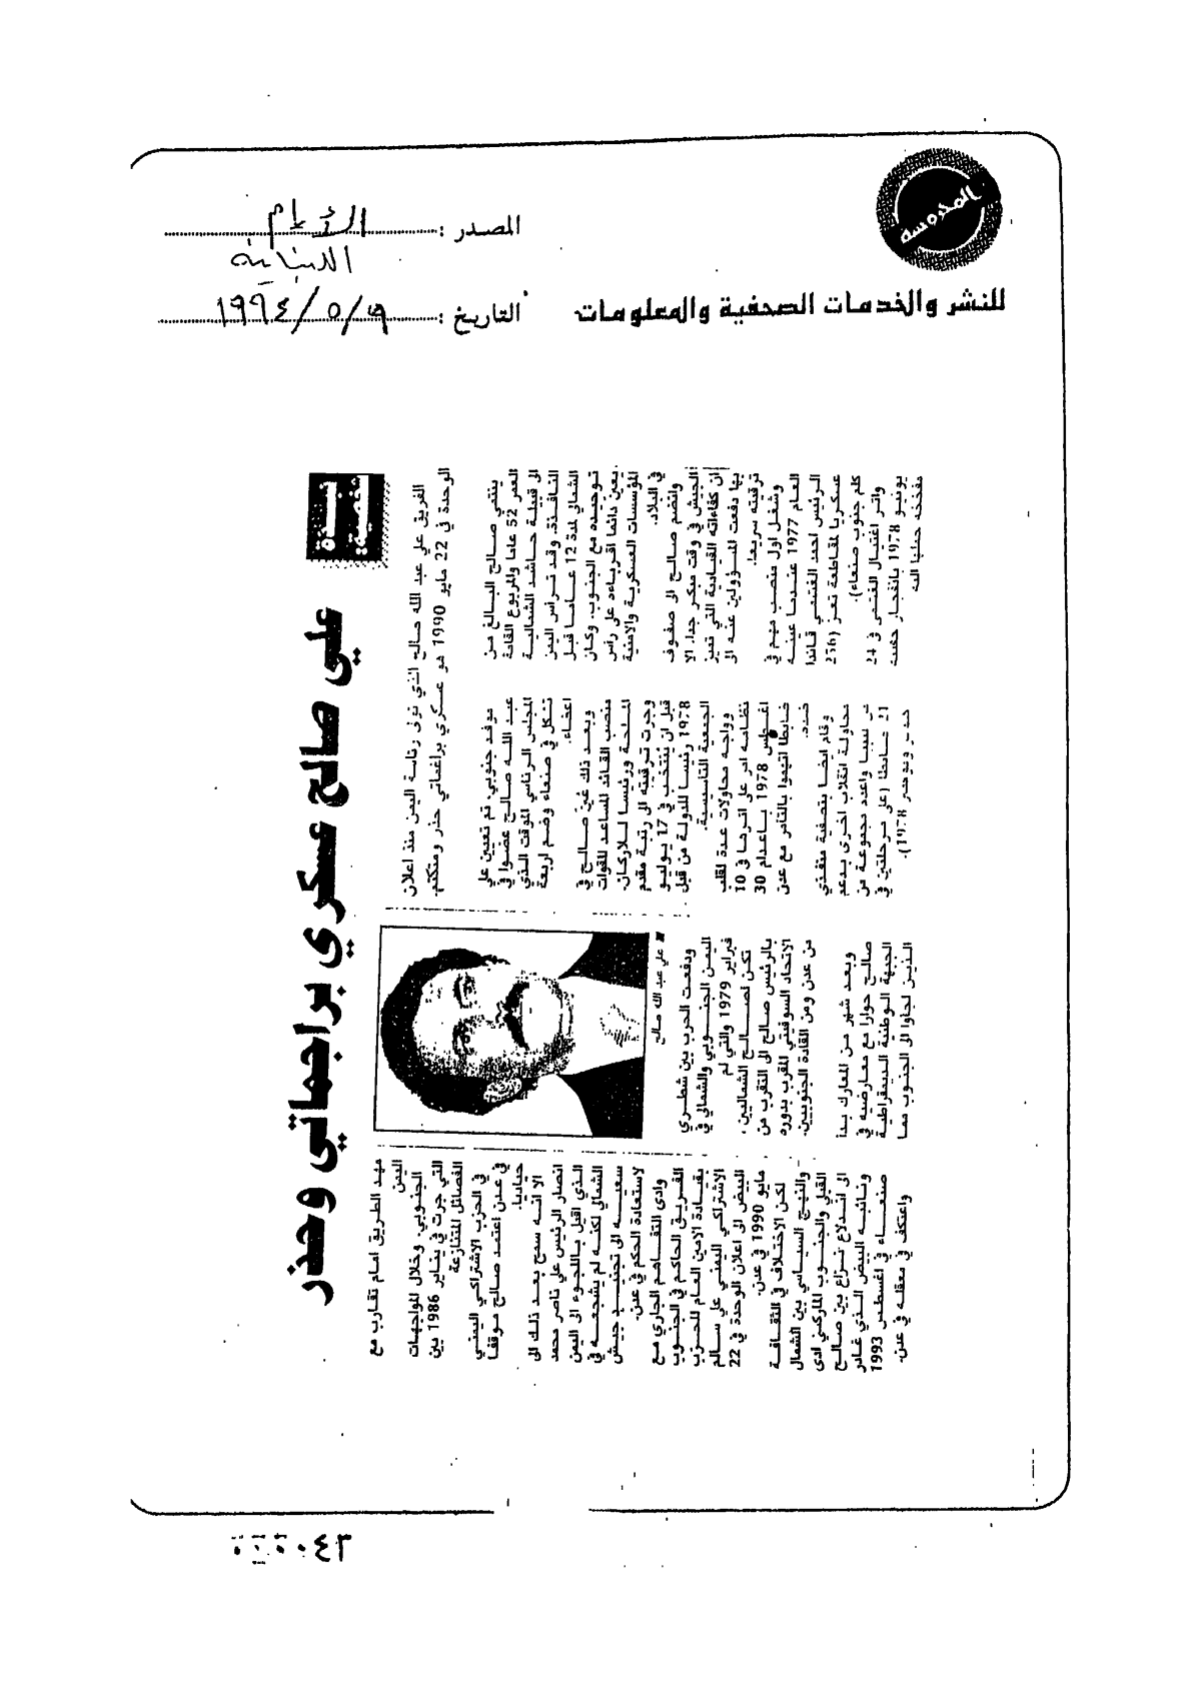 المحروسة
للنشر والخدمات الصحفية والمعلومات
المصدر :
اللبنانية
التاريخ : ١٩٩٤/٥/
علي صالح عسكري براجماتي وحذر
الفريق علي عبد الله صالح الذي تولى رئاسة اليمن منذ اعلان
الوحدة في 22 مايو 1990 هو عسكري براغماتي حذر ومتكتم.
ينتمي صالح البالغ من
العمر 52 عاما والمربوع القامة
الى قبيلة حاشد الشمالية
النافذة، وقد ترأس اليمن
الشمالي لمدة 12 عاما قبل
توحيده مع الجنوب. وكان
يعين دائما اقرباءه على رأس
المؤسسات العسكرية والامنية
في البلاد.
وانضم صالح الى صفوف
الجيش في وقت مبكر جدا. الا
ان كفاءاته القيادية التي تميز
بها دفعت المسؤولين عنه الى
ترقيته سريعا.
وشغل اول منصب مهم في
العام 1977 عندما عينه
الرئيس احمد الغشمي قائدا
عسكريا لمقاطعة تعز (256
كلم جنوب صنعاء).
واثر اغتيال الغشمي في 24
يونيو 1978 بانفجار حقيبة
مفخخة حملها اليه
موفد جنوبي، تم تعيين علي
عبد الله صالح عضوا في
المجلس الرئاسي المؤقت الذي
تشكل في صنعاء وضم اربعة
اعضاء.
وبعد ذلك عين صالح في
منصب القائد المساعد للقوات
المسلحة ورئيسا للاركان.
وجرت ترقيته الى رتبة مقدم
قبل ان ينتخب في 17 يوليو
1978 رئيسا للدولة من قبل
الجمعية التأسيسية.
وواجه محاولات عدة لقلب
نظامه امر على اثرها في 10
اغسطس 1978 باعدام 30
ضابطا اتهموا بالتآمر مع عدن
ضده.
وقام ايضا بتصفية منفذي
محاولة انقلاب اخرى بدعم
من ليبيا واعدم مجموعة من
21 ضابطا (على مرحلتين في
ونوفمبر 1978).
■ علي عبد الله صالح
ودفعت الحرب بين شطري
اليمن الجنوبي والشمالي في
فبراير 1979 والتي لم
تكن لصالح الشماليين،
بالرئيس صالح الى التقرب من
الاتحاد السوفيتي المقرب بدوره
من عدن ومن القادة الجنوبيين.
وبعد شهر من المعارك بدأ
صالح حوارا مع معارضيه في
الجبهة الوطنية الديمقراطية
الذين لجأوا الى الجنوب مما
مهد الطريق امام تقارب مع
اليمن
الجنوبي. وخلال المواجهات
التي جرت في يناير 1986 بين
الفصائل المتنازعة
في الحزب الاشتراكي اليمني
في عدن اعتمد صالح موقفا
حياديا.
الا انه سمح بعد ذلك الى
انصار الرئيس علي ناصر محمد
الذي اقيل باللجوء الى اليمن
الشمالي لكنه لم يشجعه في
سعيه الى تجنيد جيش
لاستعادة الحكم في عدن.
وادى التفاهم الجاري مع
الفريق الحاكم في الجنوب
بقيادة الامين العام للحزب
الاشتراكي اليمني علي سالم
البيض الى اعلان الوحدة في 22
مايو 1990 في عدن.
لكن الاختلاف في الثقافة
والنهج السياسي بين الشمال
القبلي والجنوب الماركسي ادى
الى اندلاع نزاع بين صالح
ونائبه البيض الذي غادر
صنعاء في اغسطس 1993
واعتكف في معقله في عدن.